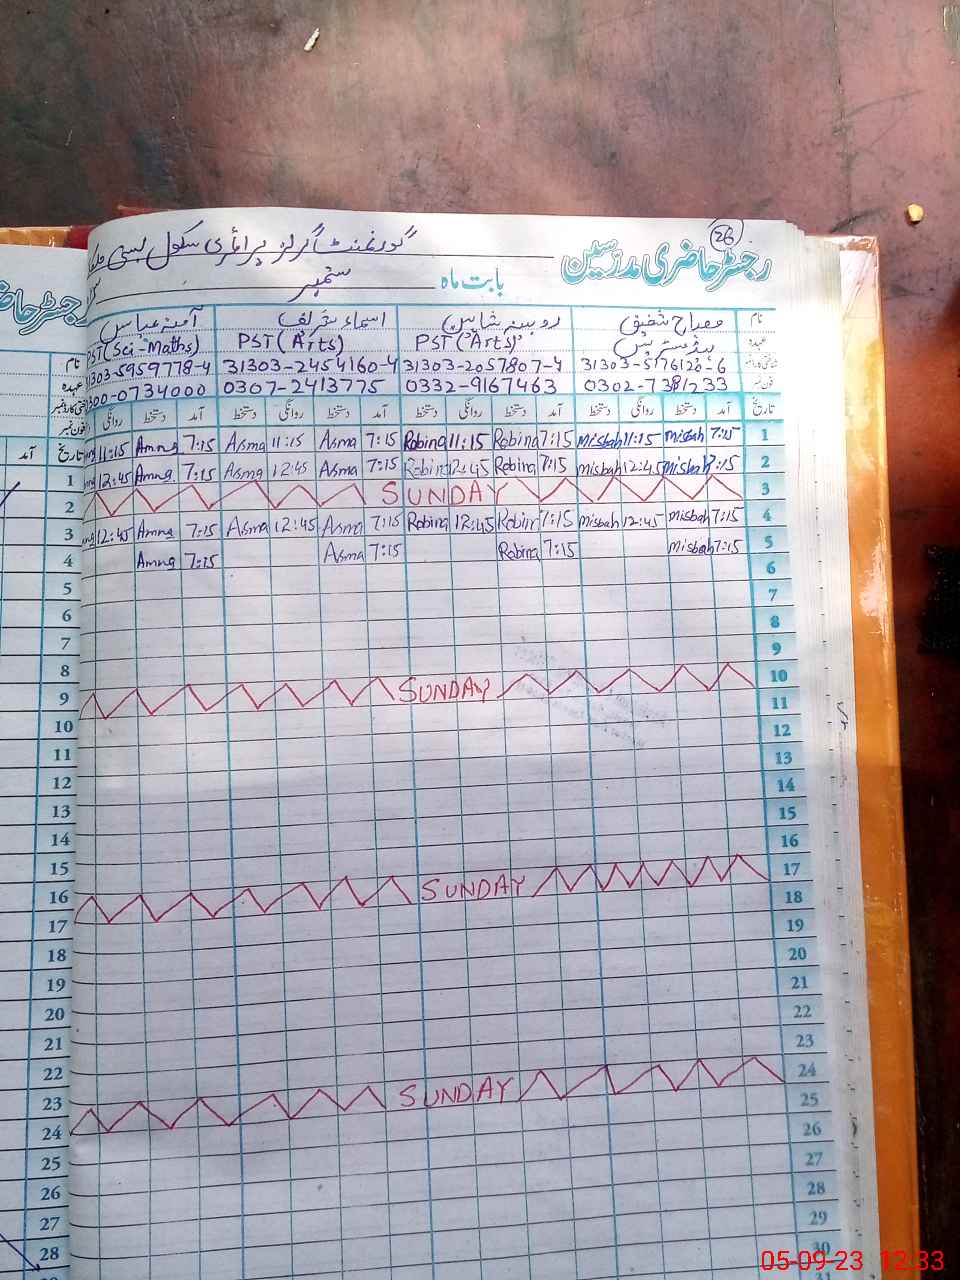 26
رجسٹر حاضری مدرسین
گورنمنٹ گرلز پرائمری سکول بستی
بابت ماہ ستمبر
نام مصباح شفیق روبینہ شاہین اسماء شریف آمنہ عباس
عہدہ ہیڈمسٹریس PST (Arts) PST (Arts) PST (Sci-Maths)
31303-5176120-6 31303-2057807-4 31303-2454160-4 31303-5959778-4
فون نمبر 0302-7381233 0332-9167463 0307-2413775 0300-0734000
تاریخ آمد دستخط روانگی دستخط آمد دستخط روانگی دستخط آمد دستخط روانگی دستخط آمد دستخط روانگی
1 7:15 Misbah 11:15 Misbah 7:15 Robina 11:15 Robina 7:15 Asma 11:15 Asma 7:15 Amna 11:15
2 7:15 Misbah 12:45 Misbah 7:15 Robina 12:45 Robina 7:15 Asma 12:45 Asma 7:15 Amna 12:45
3 SUNDAY
4 7:15 Misbah 12:45 Misbah 7:15 Robina 12:45 Robina 7:15 Asma 12:45 Asma 7:15 Amna 12:45
5 7:15 Misbah 7:15 Robina 7:15 Asma 7:15 Amna
6
7
8
9
10 SUNDAY
11
12
13
14
15
16
17 SUNDAY
18
19
20
21
22
23
24 SUNDAY
25
26
27
28
29
30
رجسٹر حا
نام
عہدہ
فون نمبر
تاریخ آمد
1
2
3
4
5
6
7
8
9
10
11
12
13
14
15
16
17
18
19
20
21
22
23
24
25
26
27
28
05-09-23 12:33